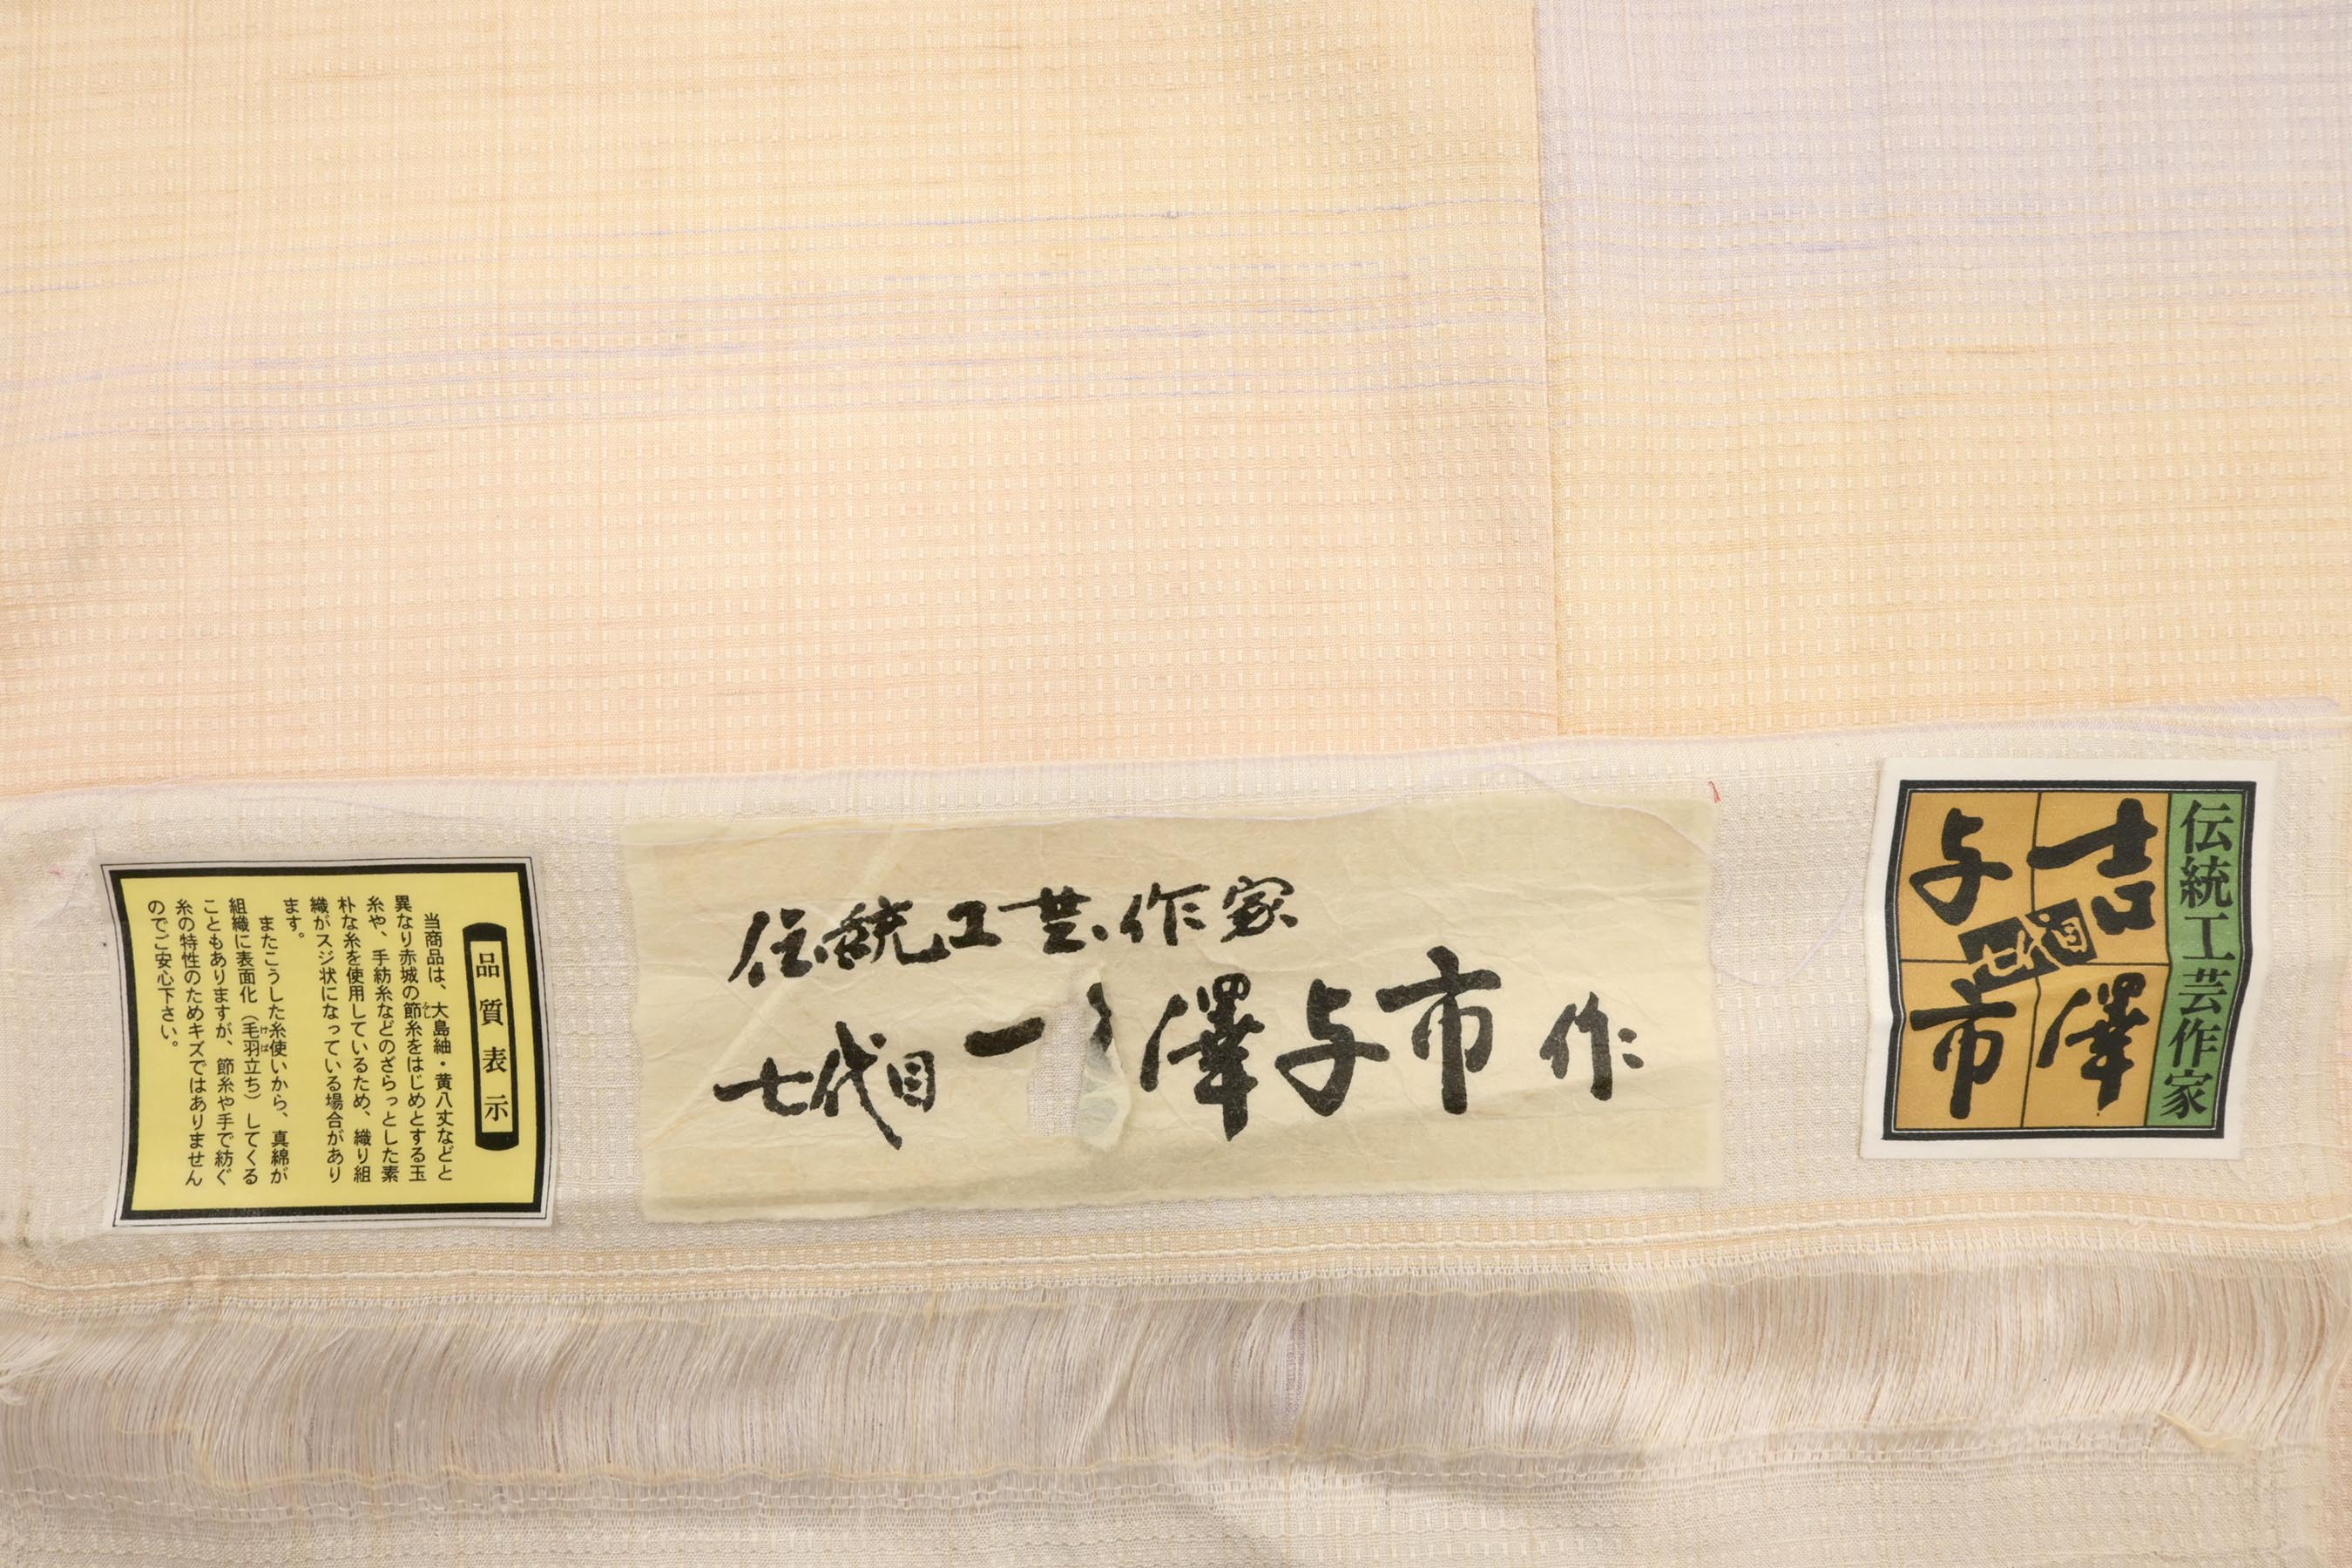 品質表示
当商品は、大島紬・黄八丈などと
異なり赤城の節糸をはじめとする玉
糸や、手紡糸などのざらっとした素
朴な糸を使用しているため、織り組
織がスジ状になっている場合があり
ます。
またこうした糸使いから、真綿が
組織に表面化（毛羽立ち）してくる
こともありますが、節糸や手で紡ぐ
糸の特性のためキズではありません
のでご安心下さい。
伝統工芸作家
七代目 澤与市 作
伝統工芸作家
吉澤
与市
七代目